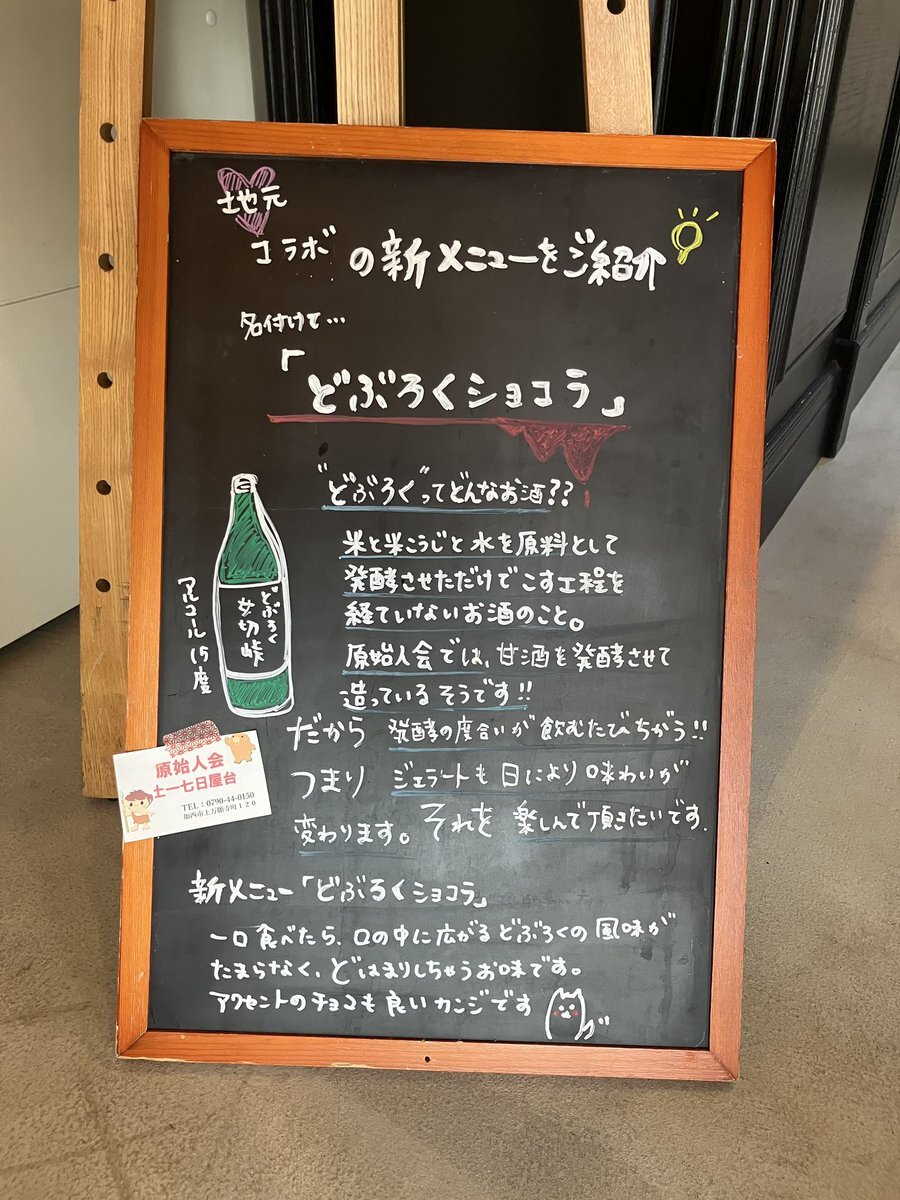 地元
コラボ の新メニューをご紹介
名付けて…
「どぶろくショコラ」
"どぶろく"ってどんなお酒??
米と米こうじと水を原料として
発酵させただけでこす工程を
経ていないお酒のこと。
原始人会では、甘酒を発酵させて
造っているそうです!!
アルコール15度
どぶろく
女切峠
だから 発酵の度合いが飲むたびちがう!!
つまり ジェラートも日により味わいが
変わります。それを楽しんで頂きたいです.
原始人会
土一七日屋台
TEL:0790-44-0150
加西市上万願寺町120
新メニュー「どぶろくショコラ」
一口食べたら、口の中に広がるどぶろくの風味が
たまらなく、どはまりしちゃうお味です。
アクセントのチョコも良いカンジです